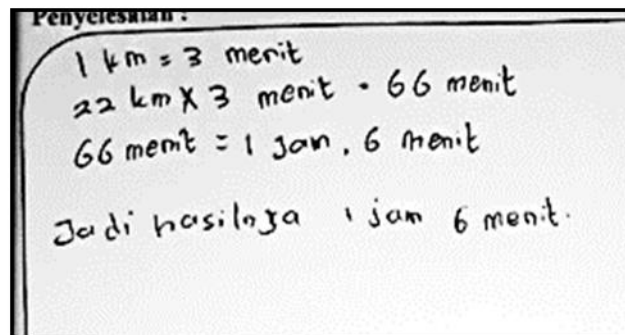 Penyelesaian :
1 km = 3 menit
22 km X 3 menit = 66 menit
66 menit = 1 jam, 6 menit
Jadi hasilnya 1 jam 6 menit.